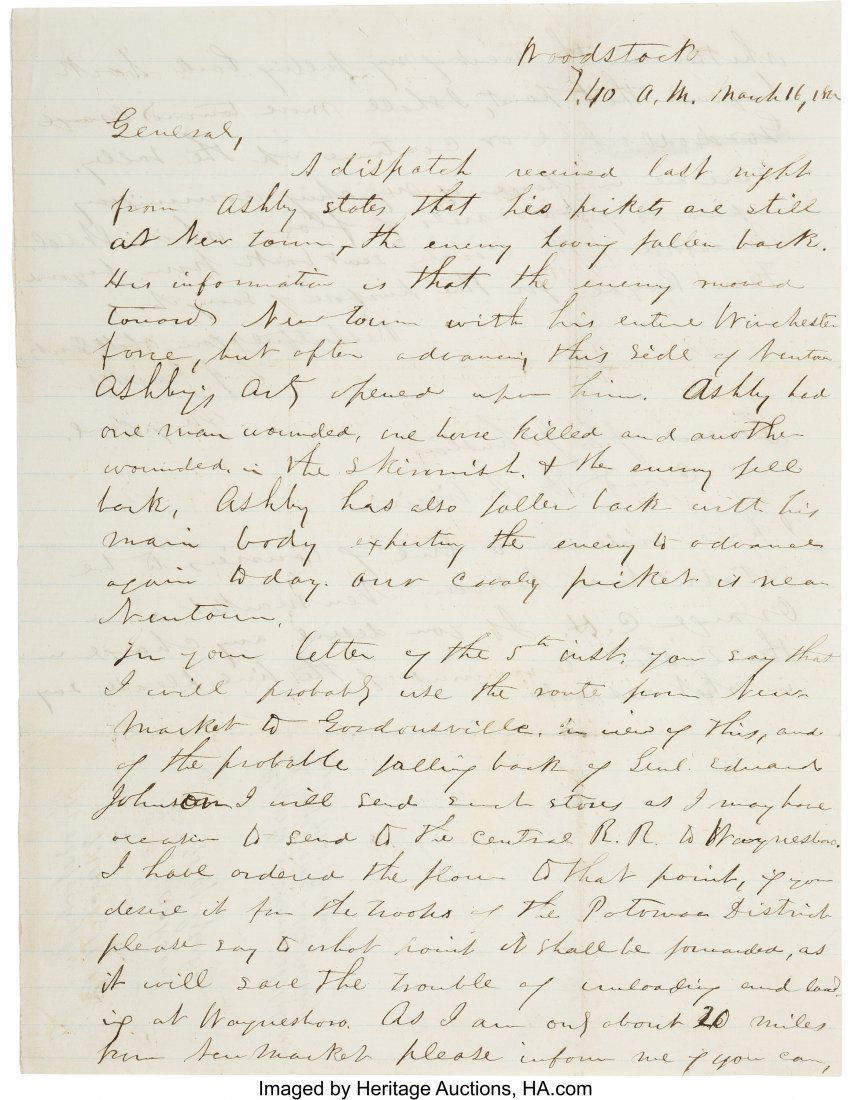 Woodstock
7.40 A.M. March 16, 1862
General,
A dispatch received last night
from Ashby states that his pickets are still
at New town, the enemy having fallen back.
His information is that the enemy moved
toward New town with his entire Winchester
force, but after advancing this side of Newtown
Ashby's Arty opened upon him. Ashby had
one man wounded, one horse killed and another
wounded in the skirmish, & the enemy fell
back, Ashby has also fallen back with his
main body expecting the enemy to advance
again today. Our Cavalry picket is near
Newtown.
In your letter of the 5th inst. you say that
I will probably use the route from New-
market to Gordonsville. In view of this, and
of the probable falling back of Genl. Edward
Johnson I will send such stores as I may have
occasion to send to the central R. R. to Waynesboro.
I have ordered the flour to that point, if you
desire it for the troops of the Potomac District
please say to what point it shall be forwarded, as
it will save the trouble of unloading and load-
ing at Waynesboro. As I am only about 20 miles
from New Market please inform me if you can,
Imaged by Heritage Auctions, HA.com